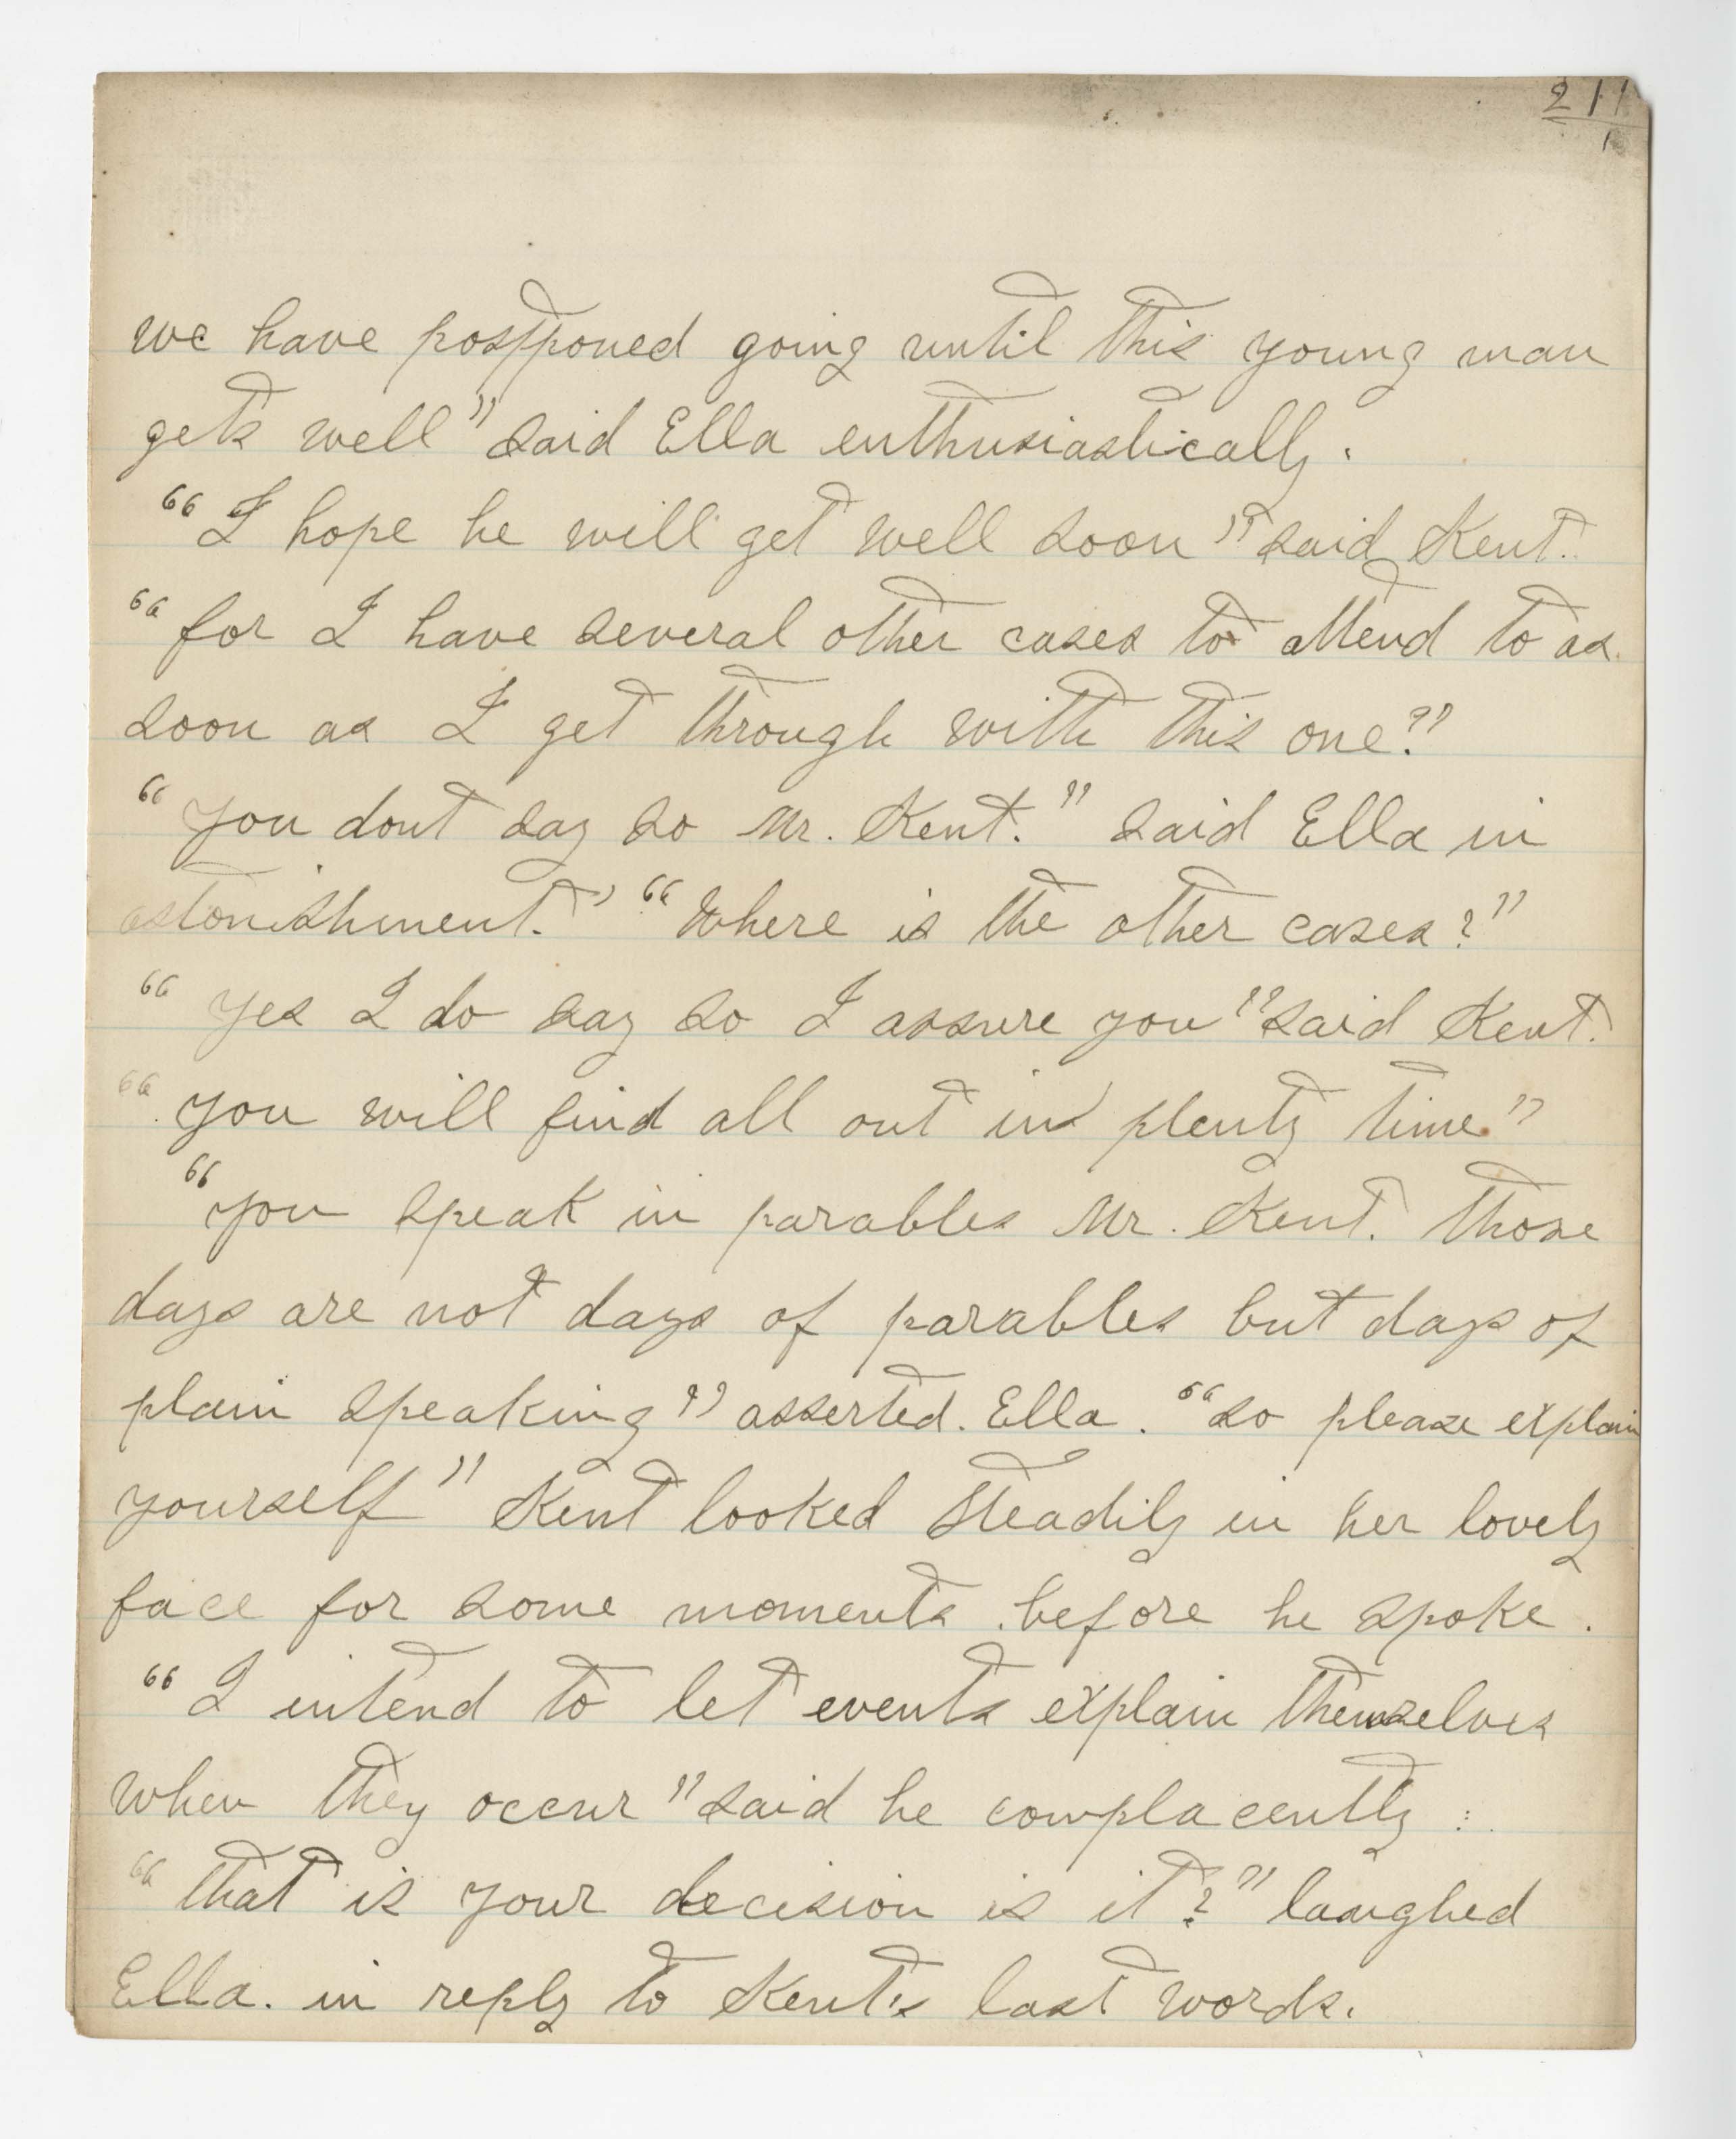 211
1
we have postponed going until this young man
gets well" said Ella enthusiastically.
"I hope he will get well soon" said Kent.
"for I have several other cases to attend to as
soon as I get through with this one?"
"you dont say so Mr. Kent." said Ella in
astonishment." "Where is the other cases?"
"yes I do say so I assure you" said Kent.
"you will find all out in plenty time."
"you speak in parables Mr. Kent. Those
days are not days of parables but days of
plain speaking" asserted. Ella. "so please explain
yourself" Kent looked steadily in her lovely
face for some moments before he spoke.
"I intend to let events explain themselves
when they occur" said he complacently:
"that is your decision is it?" laughed
Ella. in reply to Kent's last words.